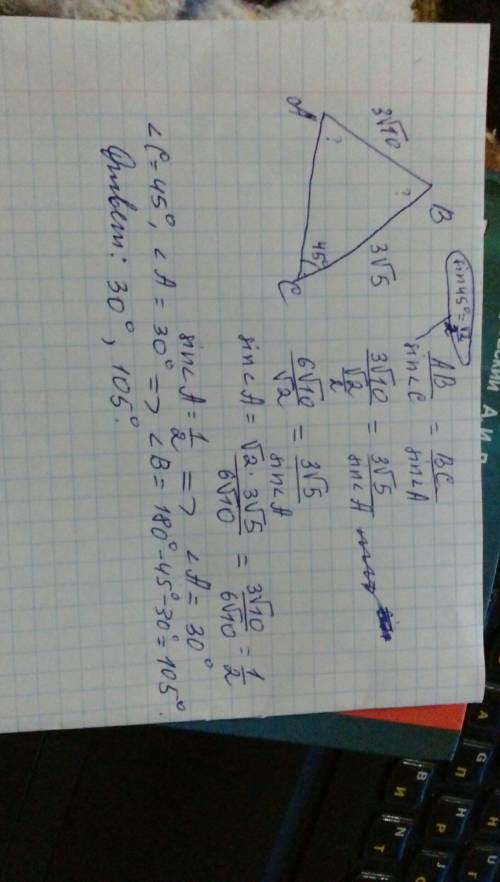 B
3√10
3√5
? ?
45°
A
C
sin45°=√2/2
AB/sin∠C = BC/sin∠A
3√10/(√2/2) = 3√5/sin∠A
6√10/√2 = 3√5/sin∠A
sin∠A = √2·3√5/6√10 = 3√10/6√10 = 1/2
sin∠A = 1/2 => ∠A = 30°
∠C=45°, ∠A = 30° => ∠B = 180°-45°-30°=105°.
Ответ: 30°, 105°.